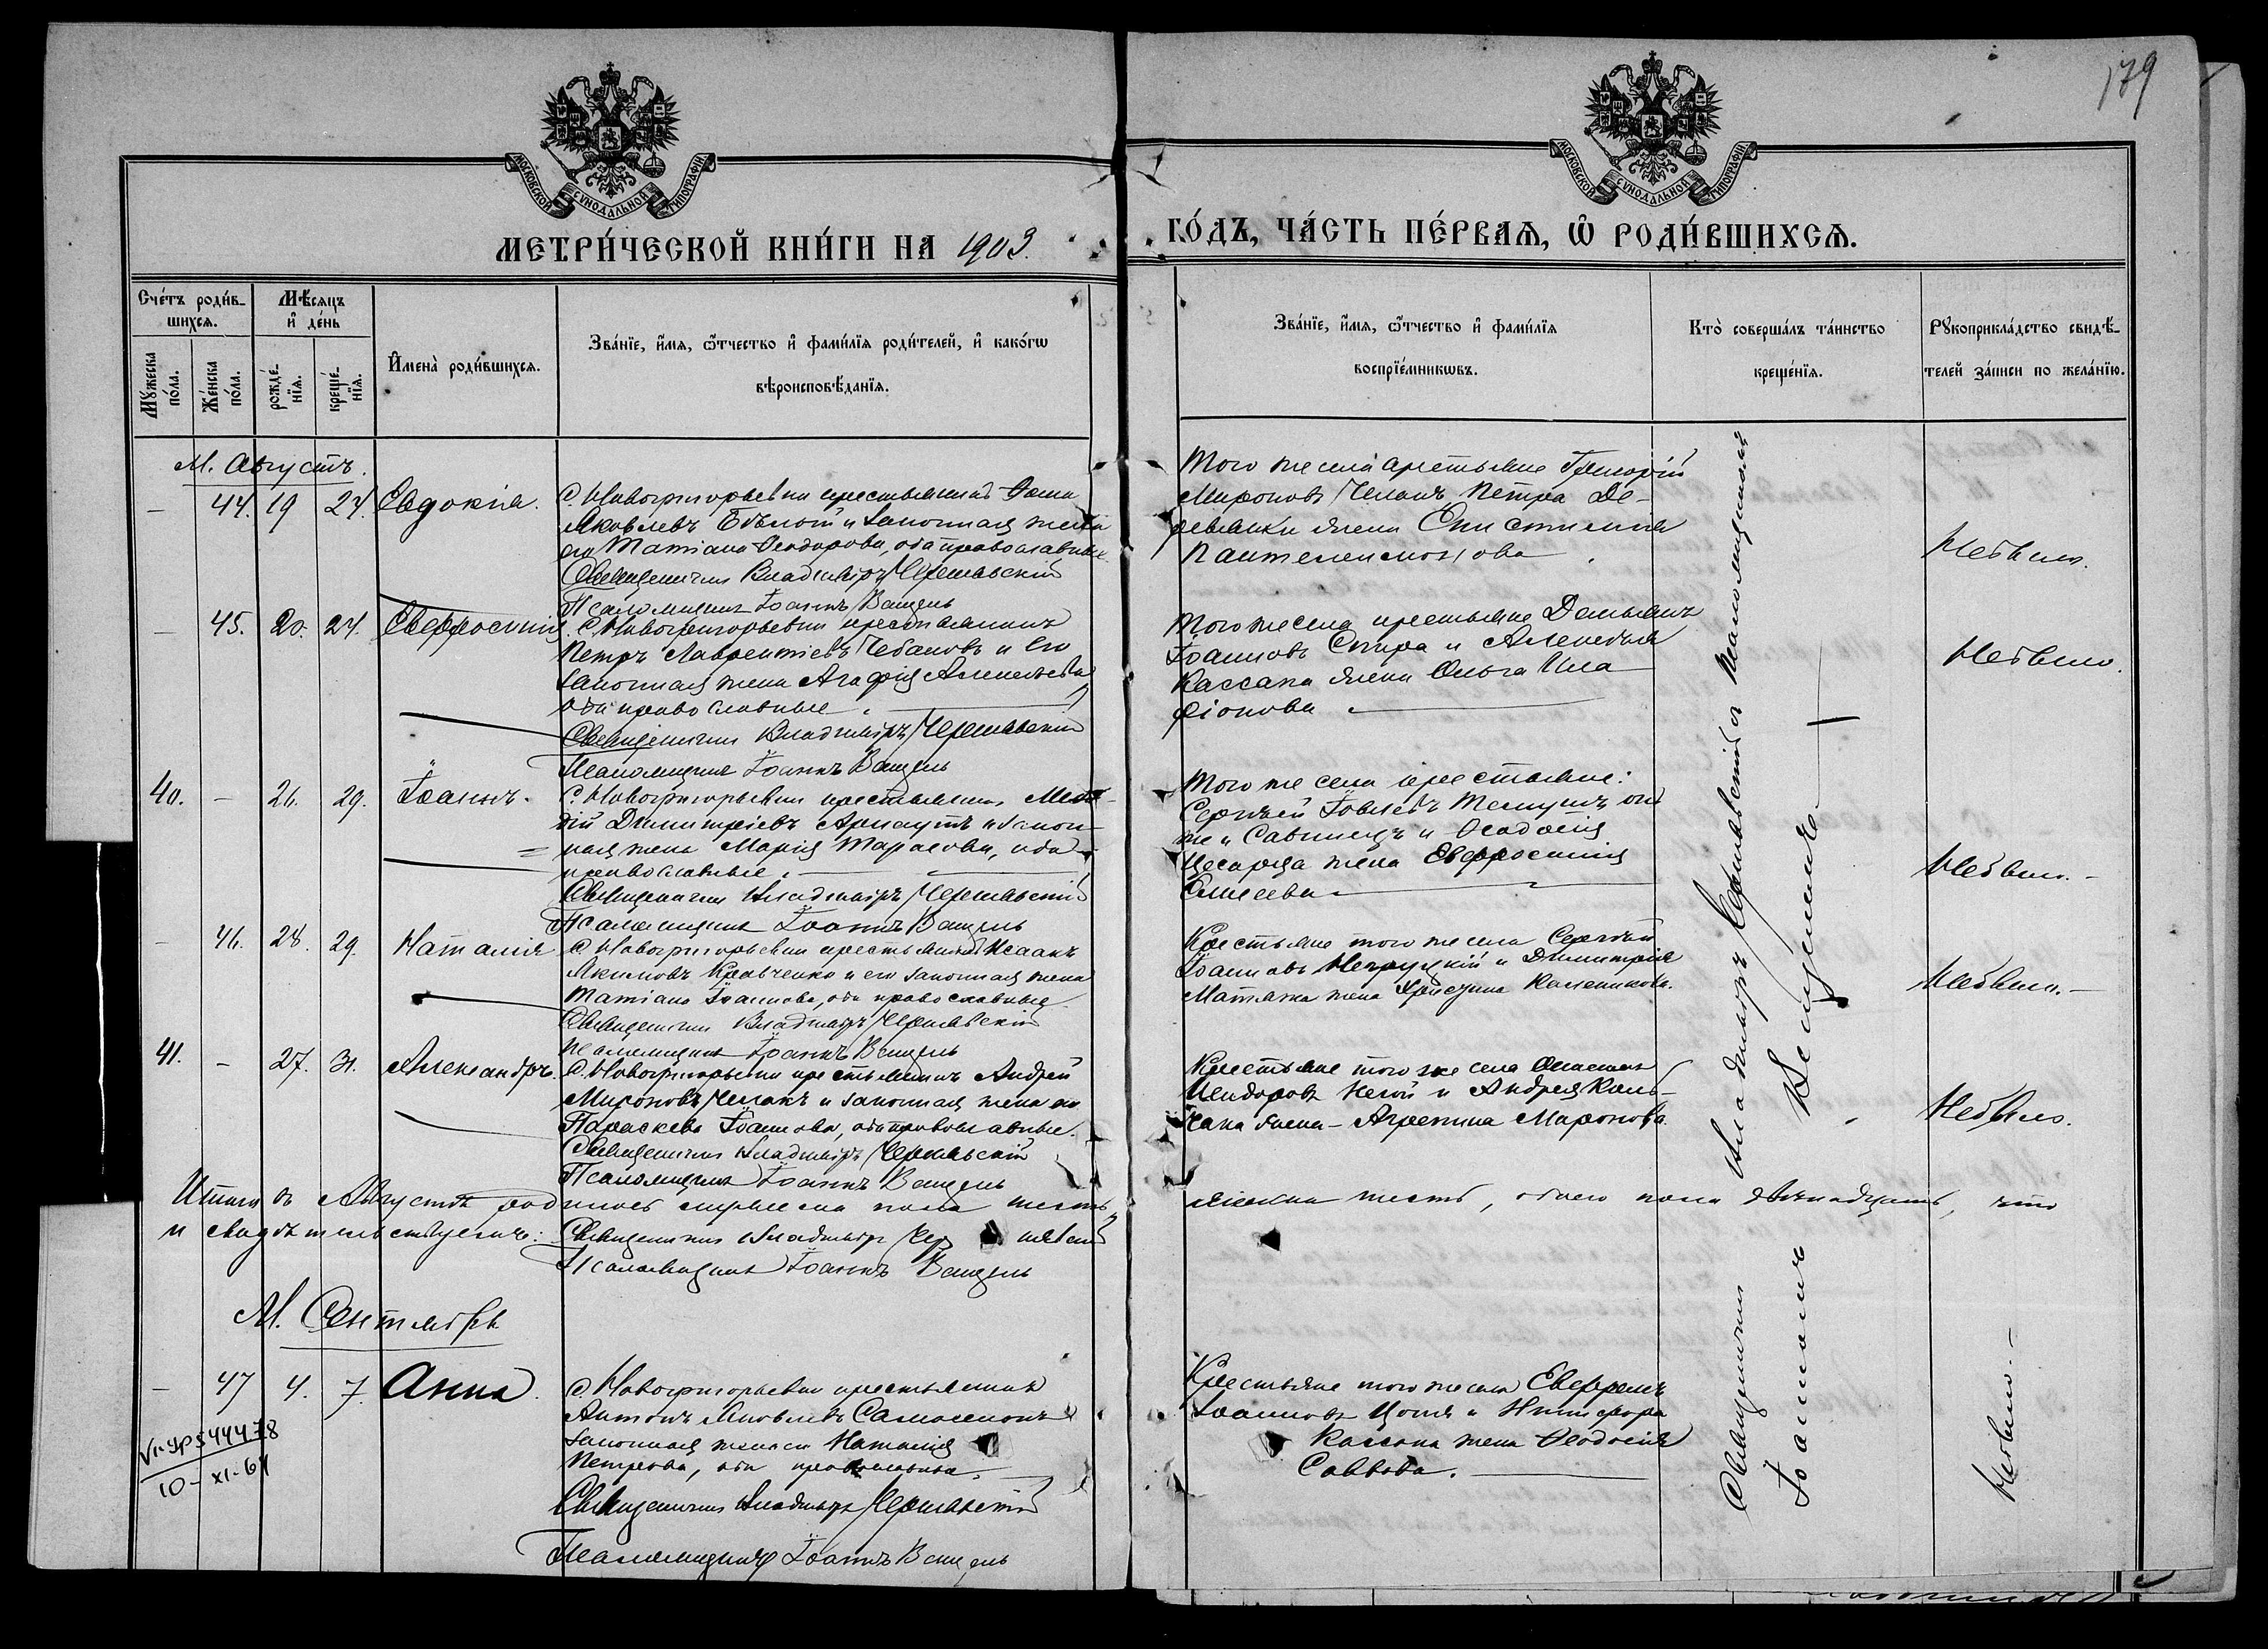 179
МОСКОВСКОЙ СУНОДАЛЬНОЙ ТИПОГРАФІИ
МОСКОВСКОЙ СУНОДАЛЬНОЙ ТИПОГРАФІИ
МЕТРИ́ЧЕСКОЙ КНИ́ГИ НА 1903.
ГО́ДЪ, ЧА́СТЬ ПЕ́РВАѦ, Ѡ РОДИ́ВШИХСѦ.
Сче́тъ роди́в-
шихсѧ.
Мѣ́сѧцъ
и де́нь
Мꙋ́жеска
по́ла.
Же́нска
по́ла.
рожде́-
нїѧ.
креще́-
нїѧ.
Имена̀ роди́вшихсѧ.
Зва́нїе, и́мѧ, ѻ́тчество и фами́лїѧ роди́телей, и како́гѡ
вѣроисповѣ́данїѧ.
Зва́нїе, и́мѧ, ѻ́тчество и фами́лїѧ
воспрїе́мникѡвъ.
Кто̀ соверша́лъ та́инство
креще́нїѧ.
Рꙋкоприкла́дство свидѣ́-
телей за́писи по жела́нїю.
М. Августъ.
– 44. 19 24. Евдокія.
С. Новогригорьевки крестьянинъ Ѳома
Яковлевъ Бѣлой и законная жена
его Татіана Ѳеодорова, оба православные
Священникъ Владиміръ Чернявскій
Псаломщикъ Іоаннъ Ващень
Того же села крестьяне Григорій
Мироновъ Челакъ Петра Де-
ревянки жена Епистимія
Пантелеимонова
Небыло.
– 45. 20. 24. Евфросинія.
С. Новогригорьевки крестьянинъ
Петръ Лаврентіевъ Чебановъ и его
законная жена Агафія Алексѣева
оба православные.
Священникъ Владиміръ Чернявскій
Псаломщикъ Іоаннъ Ващень
Того же села крестьяне Демьянъ
Іоанновъ Спира и Алексѣя
Кассана жена Ольга Ила
ріонова
Небыло.
40. – 26. 29. Іоаннъ.
С. Новогригорьевки крестьянинъ
Димитріевъ Арнаутъ и закон-
ная жена Марія Тарасова, оба
православные.
Священникъ Владиміръ Чернявскій
Псаломщикъ Іоаннъ Ващень
Того же села крестьяне:
Сергѣй Іовлевъ онъ
же и Савинецъ и Ѳеодосія
жена Евфросинія
Елисеева
Небыло. –
– 46. 28. 29. Наталія
С. Новогригорьевки крестьянинъ Исаакъ
Акимовъ Кравченко и его законная жена
Татіана Іоаннова, оба православные
Священникъ Владиміръ Чернявскій
Псаломщикъ Іоаннъ Ващень
Крестьяне того же села Сергѣй
Іоанновъ и Димитрія
жена Христина
Небыло. –
41. – 27. 31. Александръ.
С. Новогригорьевки крестьянинъ Андрей
Мироновъ Челакъ и законная жена его
Параскева Іоаннова, оба православные.
Священникъ Владиміръ Чернявскій
Псаломщикъ Іоаннъ Ващень
Крестьяне того же села
и Андрея Коль-
чака жена – Агрепина Миронова.
Небыло.
Итого въ Августѣ родилось мужеска пола шесть,
женска шесть, обоего пола двѣнадцать, что
и свидѣтельствуемъ: Священникъ Владиміръ Чернявскій
Псаломщикъ Іоаннъ Ващень
М. Сентябрь
– 47 4. 7. Анна.
С. Новогригорьевки крестьянинъ
Антонъ Яковлевъ
законная жена его Наталія
Петрова, оба православные.
Священникъ Владиміръ Чернявскій
Псаломщикъ Іоаннъ Ващень
Крестьяне того же села Евфремъ
Іоанновъ и Никифора
Кассана жена Ѳеодосія
Саввова.
Небыло. –
Священникъ Владиміръ Чернявскій съ псаломщикомъ
Іоанномъ Ващенемъ
10-XI-61